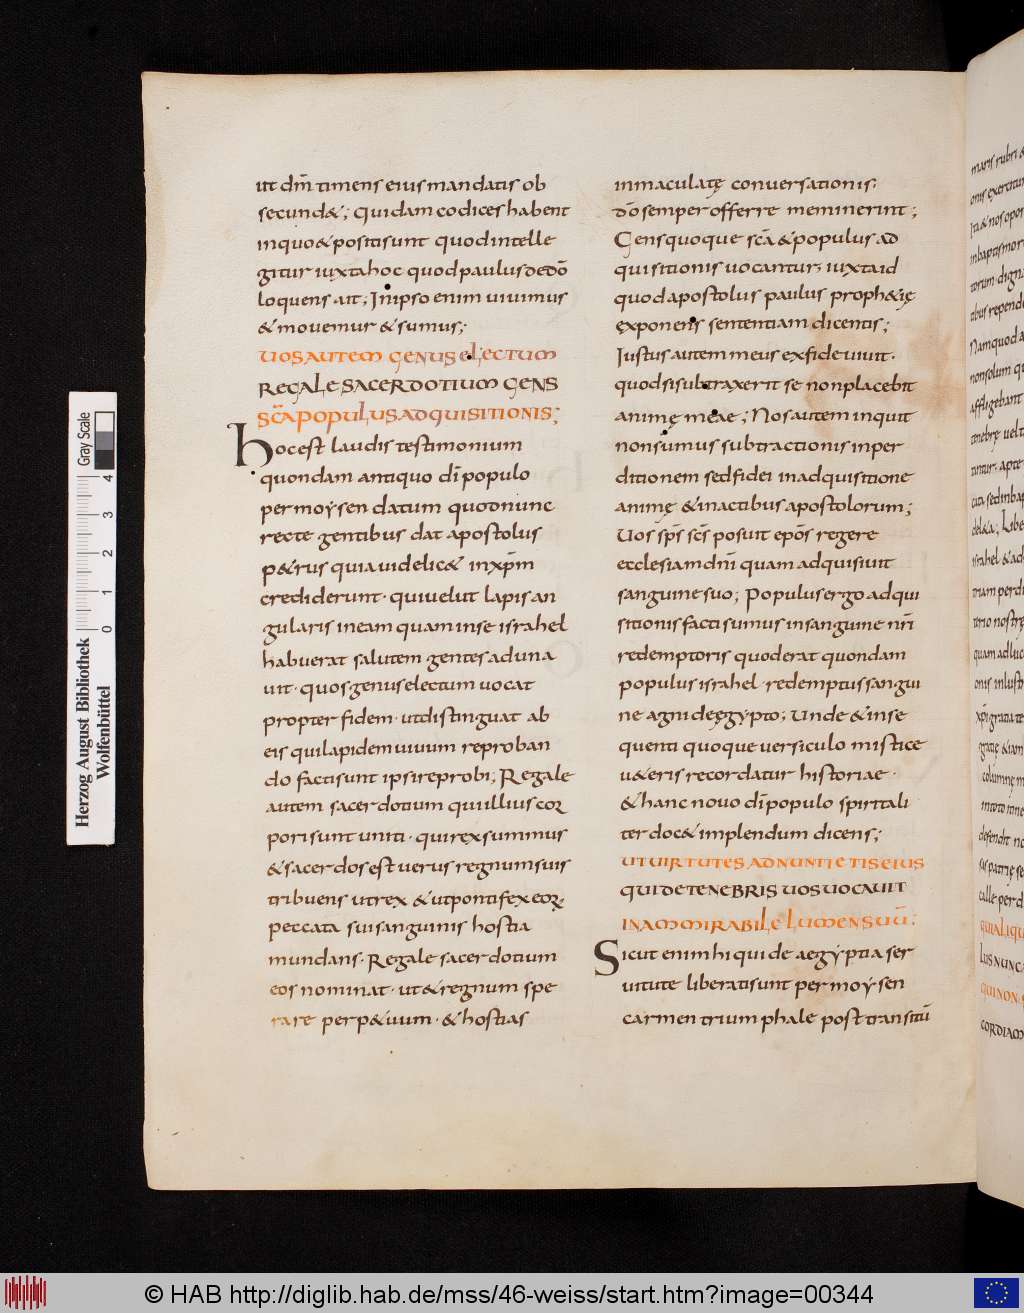 ut dm̅ timens eius mandatis ob
secund&; Quidam codices habent
inquo & positi sunt quod intelle
gitur iuxta hoc quod paulus dedō
loquens ait; In ipso enim uiuimus
& mouemur & sumus;
UOS AUTEM GENUS ELECTUM
REGALE SACERDOTIUM GENS
SC̄A POPULUS ADQUISITIONIS;
Hoc est laudis testimonium
quondam antiquo dī populo
per moysen datum quod nunc
recte gentibus dat apostolus
p&rus quia uidelic& in xp̄m
crediderunt· qui uelut lapis an
gularis in eam quam in se israhel
habuerat salutem gentes aduna
uit· quos genus electum uocat
propter fidem· ut distinguat ab
eis qui lapidem uiuum reproban
do facti sunt ipsi reprobi; Regale
autem sacerdotium qui illius cor
pori sunt uniti· qui rex summus
& sacerdos est uerus regnum suis
tribuens ut rex & ut pontifex eoꝝ
peccata sui sanguinis hostia
mundans· Regale sacerdotium
eos nominat· ut & regnum spe
rare perp&uum· & hostias
inmaculatę conuersationis·
dō semper offerre meminerint;
Gens quoque sc̄a & populus ad
quisitionis uocantur· iuxta id
quod apostolus paulus proph&ię
exponens sententiam dicentis;
Iustus autem meus ex fide uiuit·
quod si subtraxerit se non placebit
animę meae; Nos autem inquit
non sumus subtractionis in per
ditionem sed fidei in adquisitione
animę & in actibus apostolorum;
Uos sp̄s sc̄s posuit epōs regere
ecclesiam dn̄i quam adquisiuit
sanguine suo; Populus ergo adqui
sitionis facti sumus in sanguine nr̄i
redemptoris quod erat quondam
populus israhel· redemptus sangui
ne agni de ęgypto; Unde & in se
quenti quoque uersiculo mistice
u&eris recordatur historiae·
& hanc nouo dī populo spiritali
ter doc& implendum dicens;
UT UIRTUTES ADNUNTIETIS EIUS
QUI DE TENEBRIS UOS UOCAUIT
IN AMMIRABILE LUMEN SUŪ·
Sicut enim hi qui de aegyptia ser
uitute liberati sunt per moysen
carmen triumphale post transitū
maris rubri
Gray Scale
4
3
2
1
0
Herzog August Bibliothek
Wolfenbüttel
© HAB http://diglib.hab.de/mss/46-weiss/start.htm?image=00344